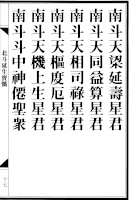 南斗天梁延壽星君
南斗天同益算星君
南斗天相司祿星君
南斗天樞度厄星君
南斗天機上生星君
南斗斗中神僊聖衆
北斗延生寶懺